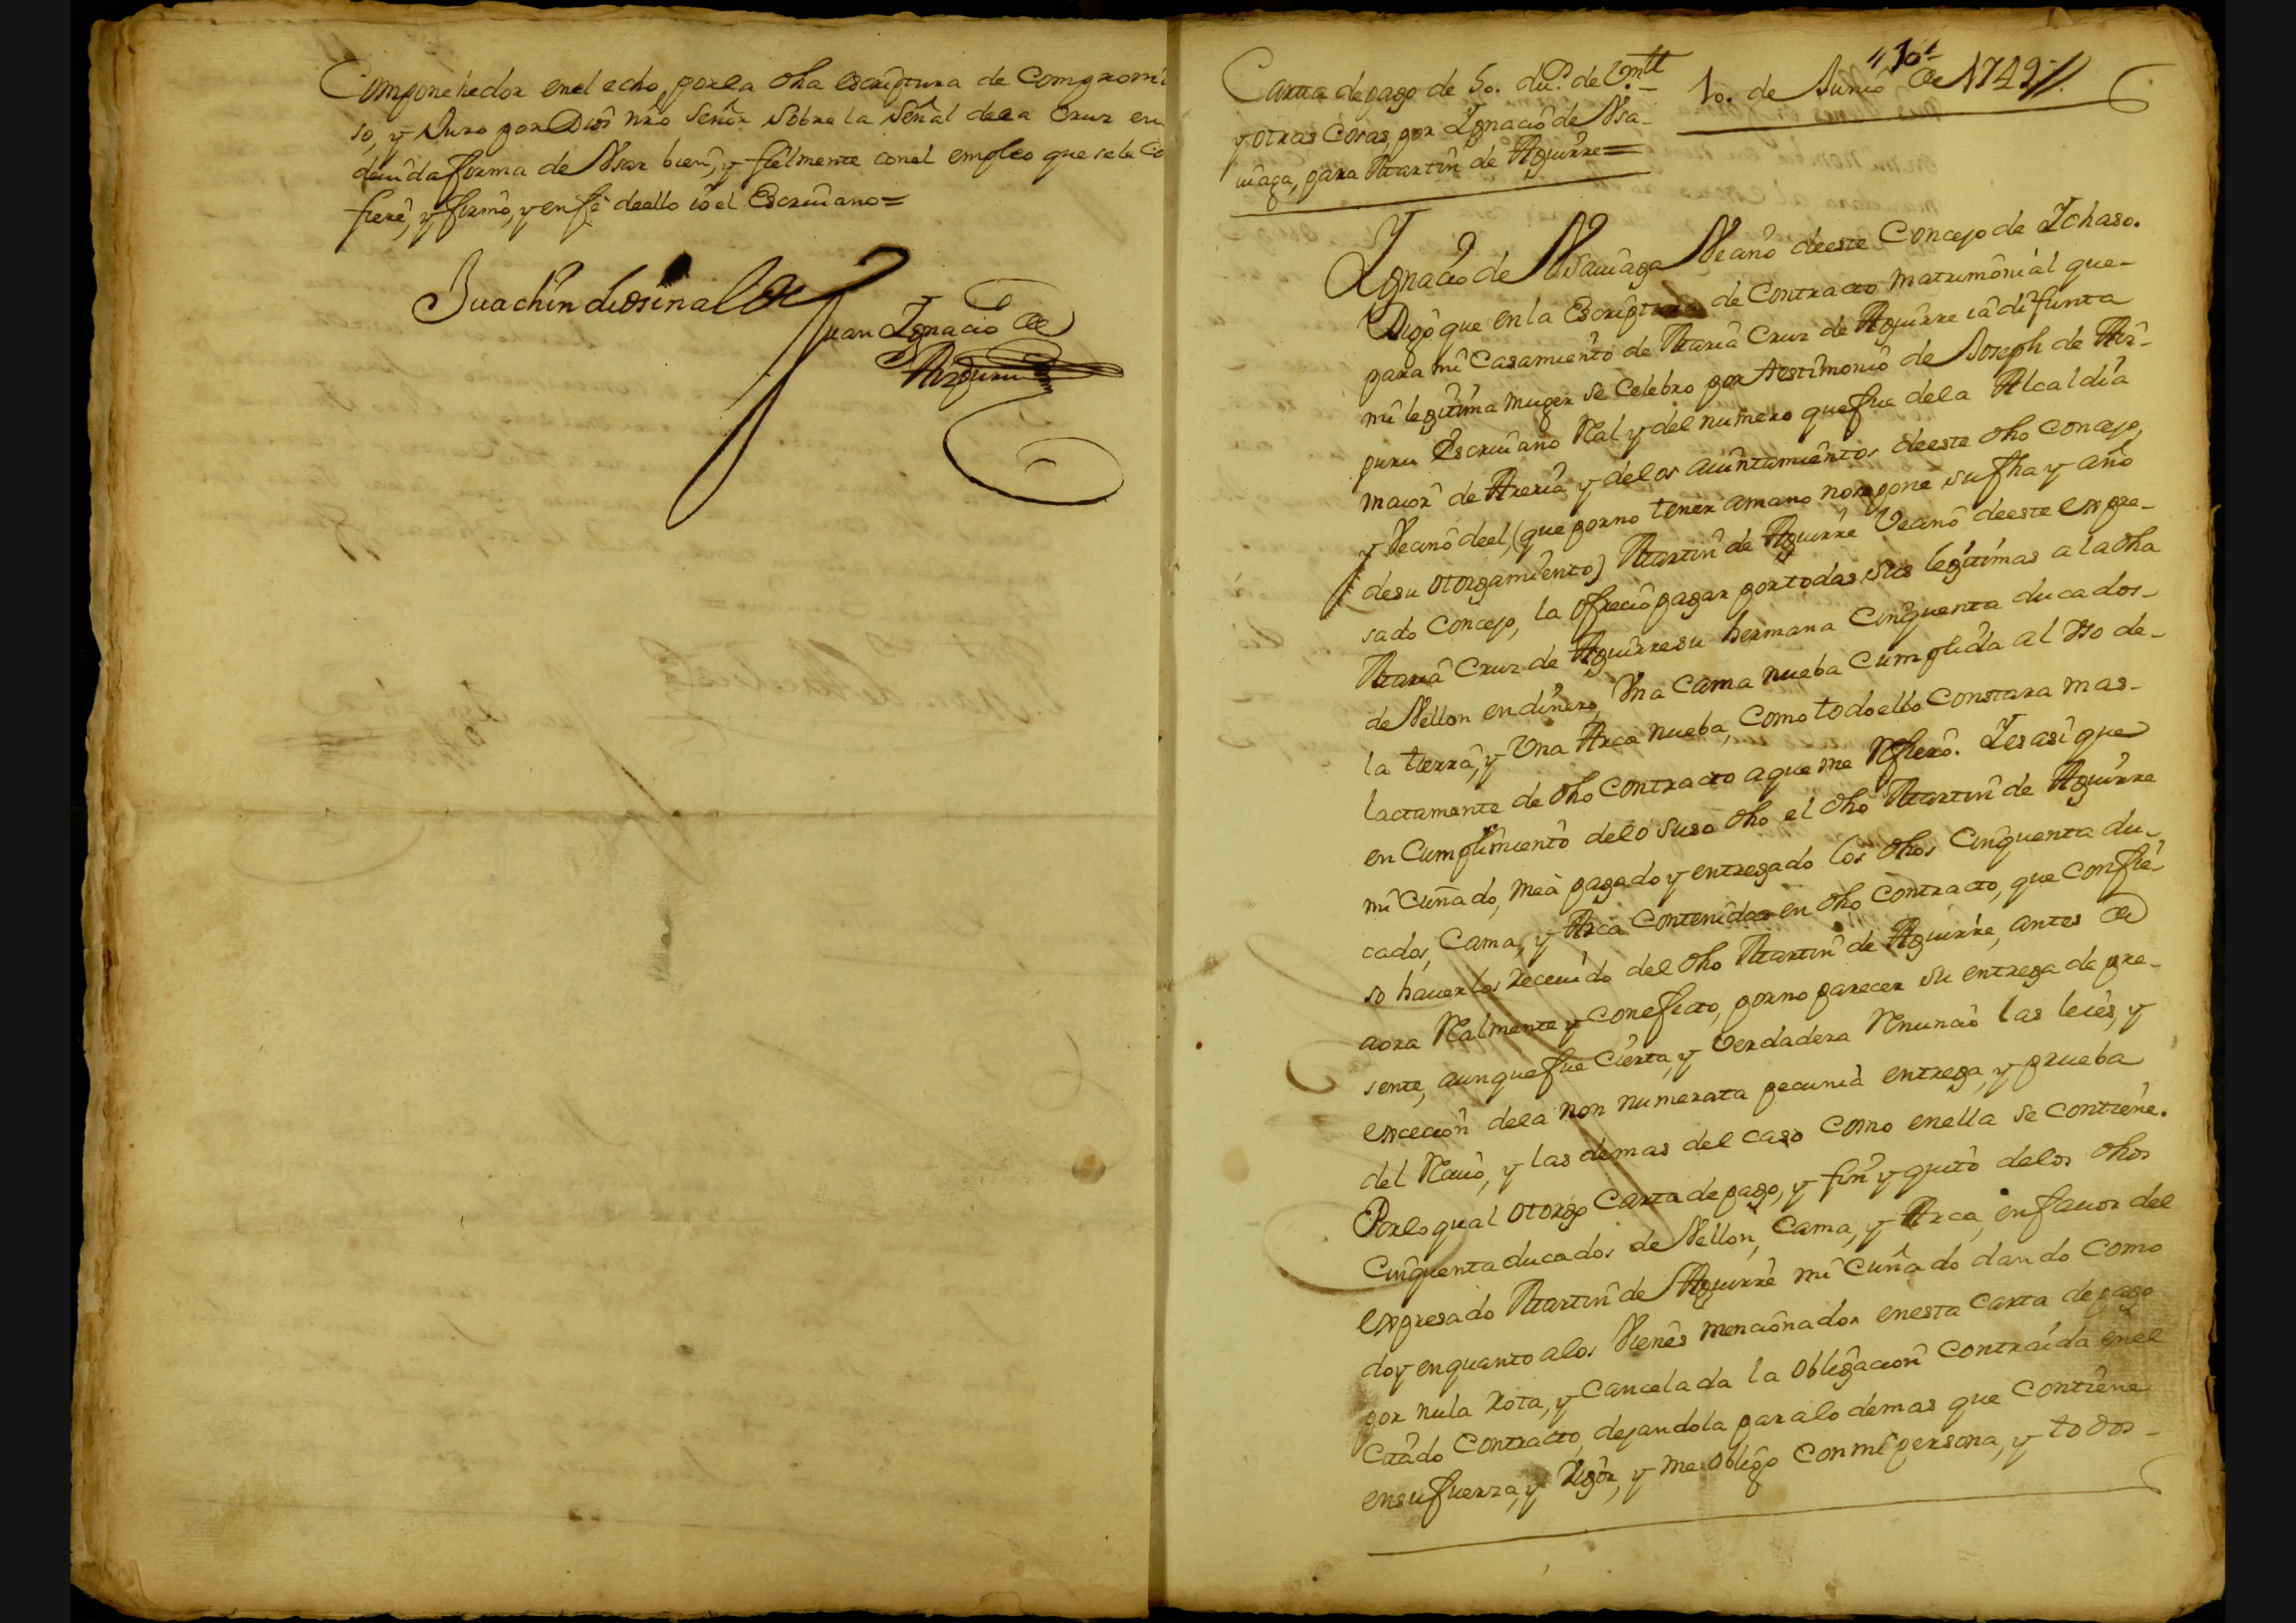 Componehedor enel echo, porla dha escriptura de Compromi
so, y Juro por Dios nrô Señor sobre la señal dela Cruz en
deuida forma de Vsar bien, y fielmente conel empleo que sele Co
fiere, y firmô, y en fê deello io el Escriuano=
Juachin de osinalde
Juan Ignacio de
Aizpuru
Carta de pago de 50. du.s de V.on
y otras Cosas, por Ignacio de Vsa-
uiaga, para Martin de Aguirre=
10. de Junio de 1742//.
Ignacio de Vsauiaga Veçino deeste Concejo de Ichaso.
Digo que en la Escriptura de Contracto matrimonial que-
para mi Casamiento de Maria Cruz de Aguirre iâ difunta
mi legitima muger se Celebro por testimonio de Joseph de Aiz-
puru Escriuano Real y del numero que fue dela Alcaldia
maior de Areria y delos aiuntamientos deeste dho Concejo,
y Veçino deel, (que porno tener amano nose pone su fha y año
desu otorgamiento) Martin de Aguirre Veçino deeste expre-
sado Concejo, la ofrecio pagar por todas sus legitimas a la dha
Maria Cruz de Aguirre su hermana Cinquenta ducados-
de Vellon en dinero, Vna Cama nueba Cumplida al Vso de-
la tierra, y Vna Arca nueba, Como todo ello Constara mas-
lactamente de dho Contracto aque me Refiero. Y es asi que
en Cumplimiento delo suso dho el dho Martin de Aguirre
mi Cuñado, me à pagado y entregado los dhos Cinquenta du-
cados, Cama, y Arca Contenidos en dho Contracto, que Confie-
so hauerlos recevido del dho Martin de Aguirre, antes de
aora Realmente y Conefecto, porno parecer su entrega de pre-
sente, aunque fue Cierta, y Verdadera Renuncio las leies, y
excecion dela non numerata pecunia entrega, y prueba
del Reciuo, y las demas del caso Como enella se contiene.
Porlo qual otorgo Carta de pago, y fin y quito delos dhos
Cinquenta ducados de Vellon, Cama, y Arca, en fauor del
expresado Martin de Aguirre mi Cuñado dando Como
doy en quanto alos Vienes mencionados enesta Carta de pago
por nula rota, y Cancelada la obligacion contraida enel
Citado Contracto, dejandola paralo demas que Contiene
ensu fuerza, y Vigor, y me obligo Con mi persona, y todos-